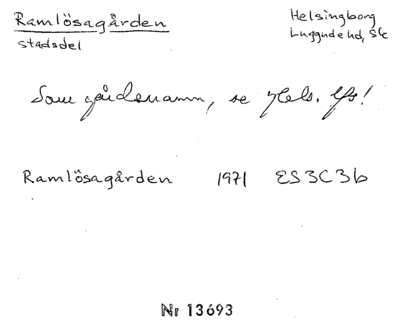 Ramlösagården
stadsdel
Helsingborg
Luggude hd, Sk
Som gårdsnamn, se Hels. lfs!
Ramlösagården 1971 ES3C3b
Nr 13693